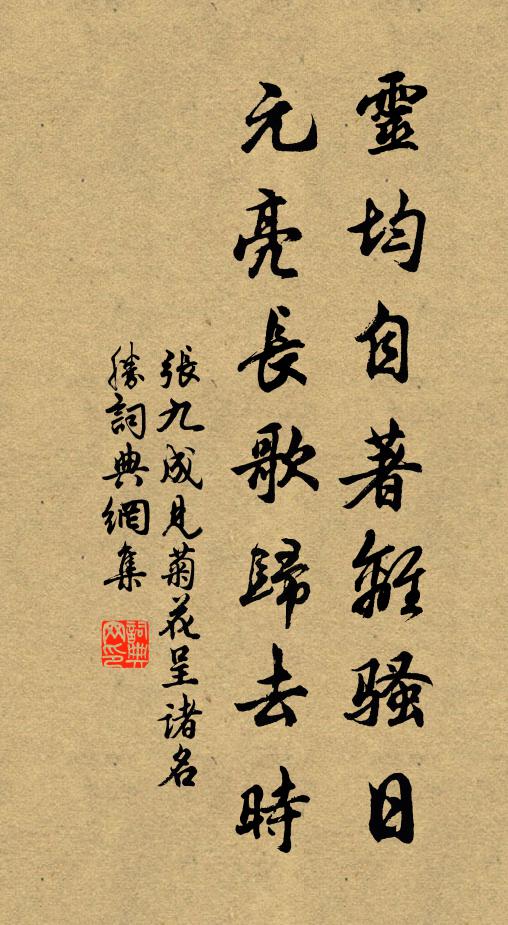 靈均自著離騷日
元亮長歌歸去時
張九成見菊花呈諸名
勝詞典網集
詞典網印